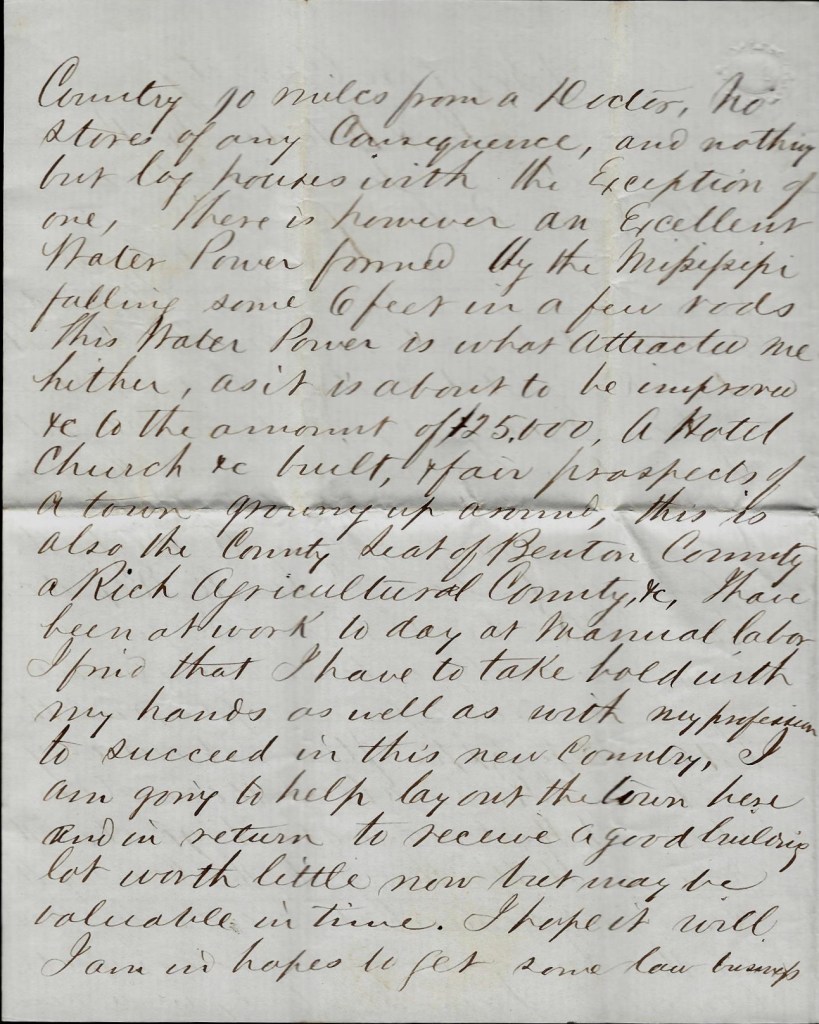 Country 10 miles from a Doctor, no
stores of any Consequence, and nothing
but log houses with the Exception of
one, There is however an Excellent
Water Power formed by the Missisipi
falling some 6 feet in a few rods
This Water Power is what Attracted me
hither, as it is about to be improved
&c to the amount of $25.000, A Hotel
Church &c built, & fair prospects of
a town growing up around, this is
also the County Seat of Benton County
a Rich Agricultural County, &c, I have
been at work to day at Manual labor
I find that I have to take hold with
my hands as well as with my profession
to succeed in this new Country, I
am going to help lay out the town here
and in return to receive a good building
lot worth little now but may be
valuable in time. I hope it will
I am in hopes to get some law business